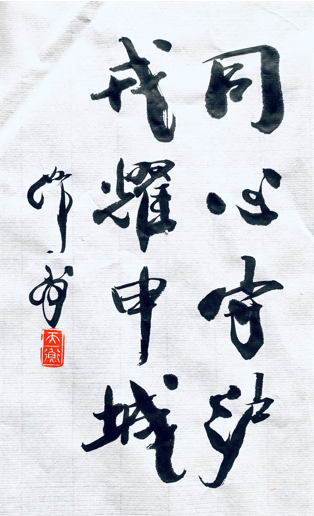 同心守沪
戎耀申城
天衡